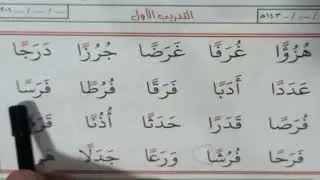 التدريب الأول
هُزُوًا غُرَفًا غَرَضًا جُرُزًا دَرَجًا
عَدَدًا أَدَبًا فَرَقًا فُرُطًا فَرَسًا
فُرَصًا قَدَرًا حَدَثًا أُذُنًا
فَرَحًا فُرُشًا وَرَعًا جَدَلًا